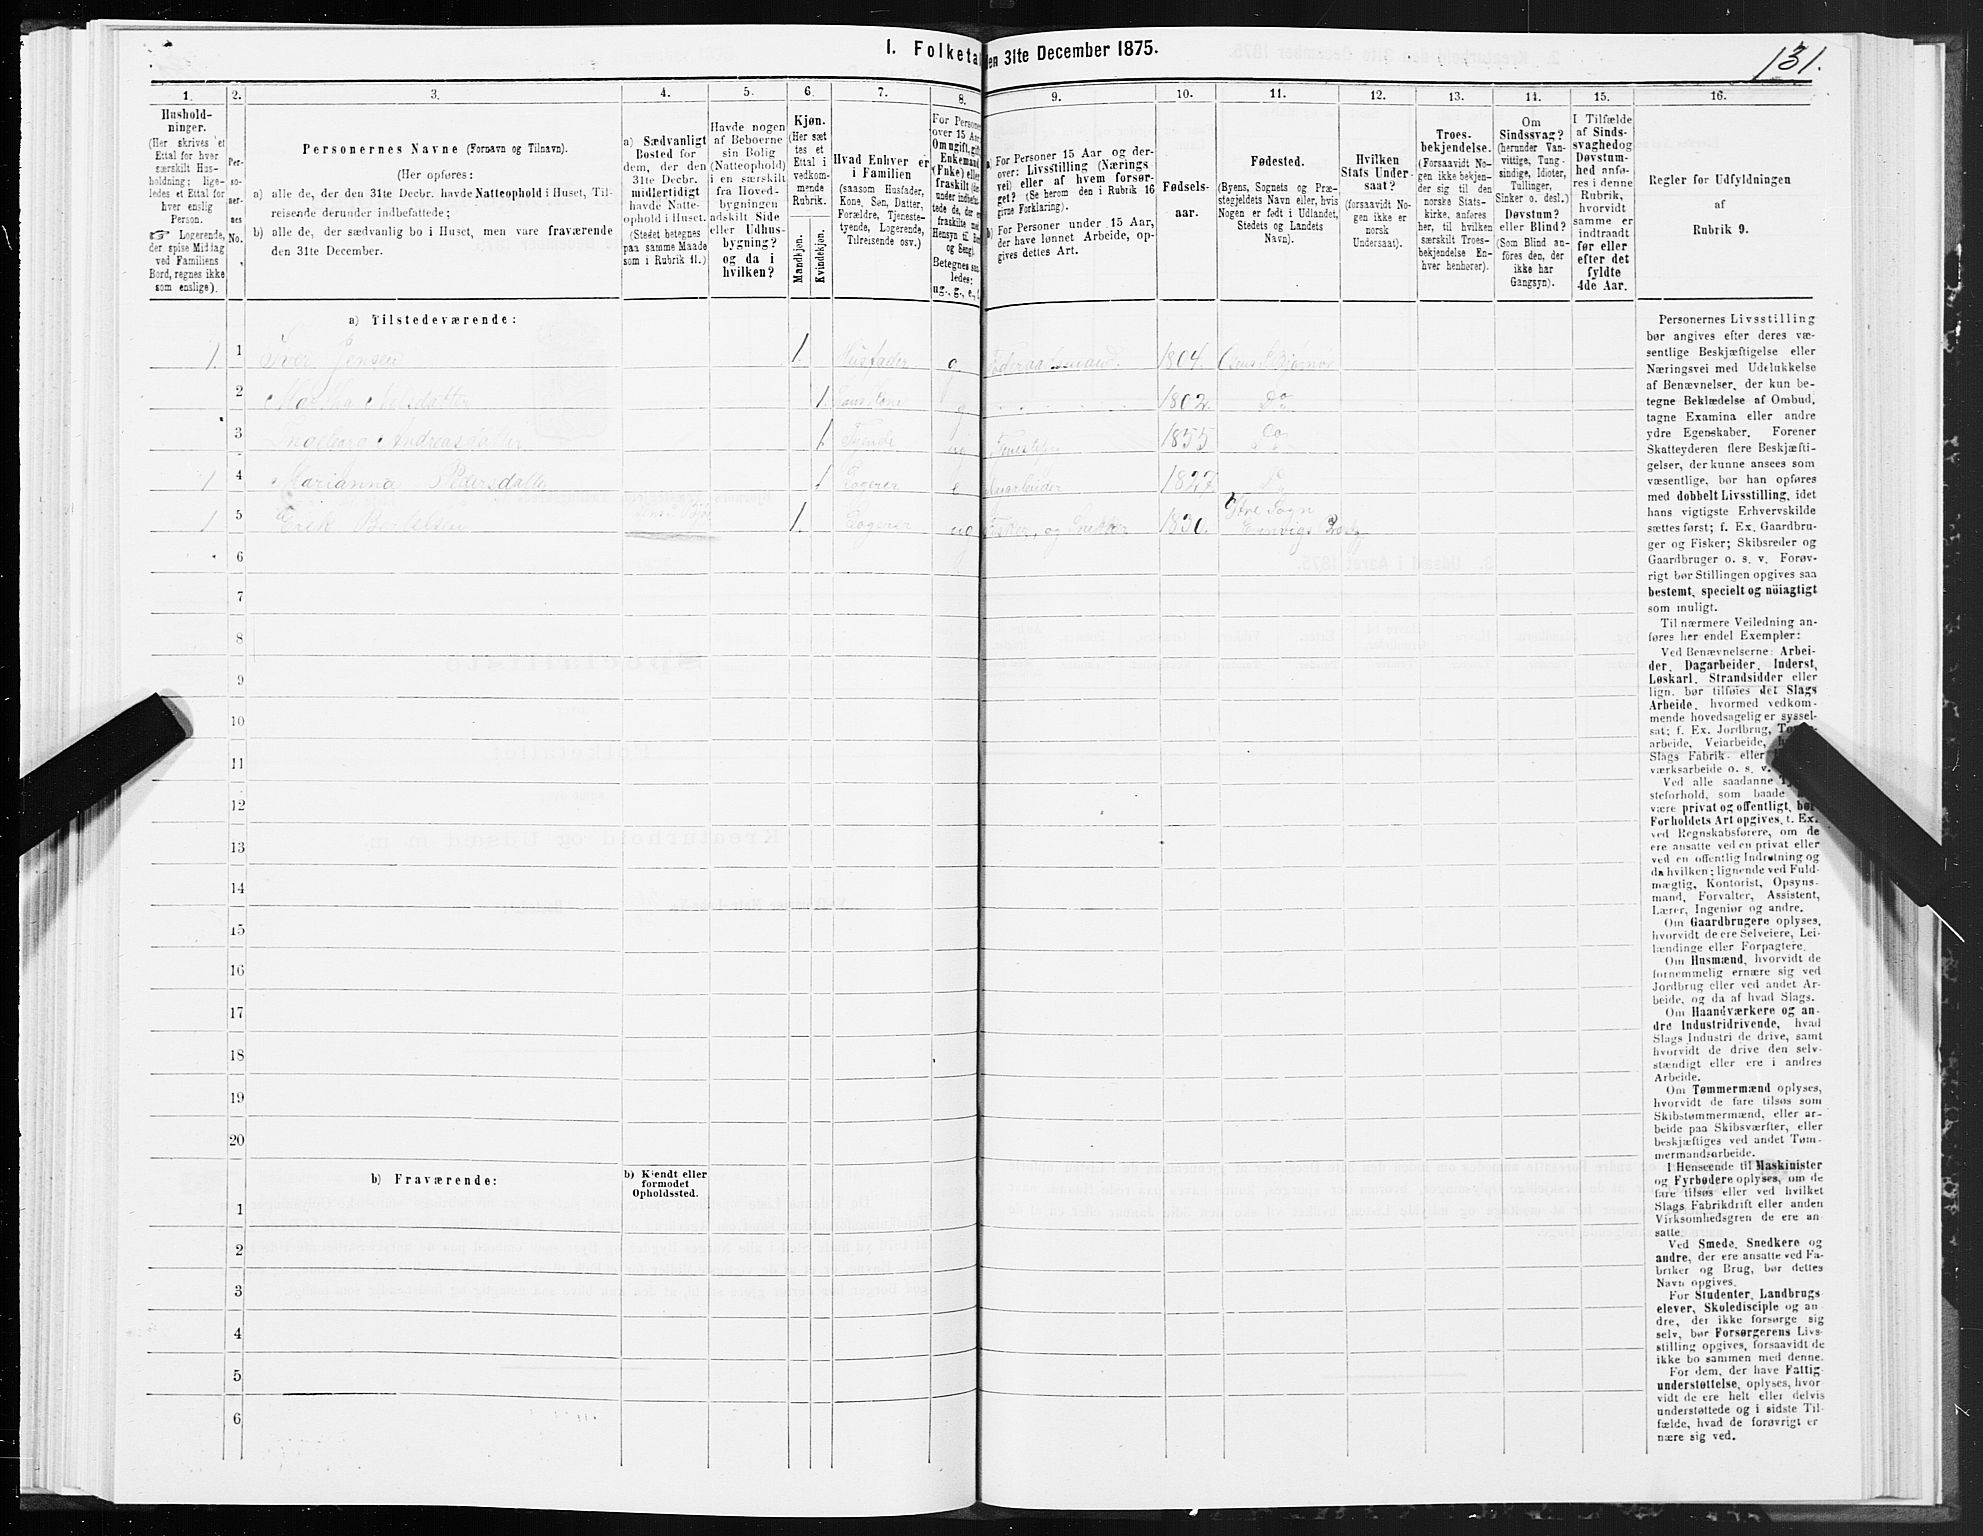 1. Folketal den 31te December 1875.
131.
1.
Hushold-
ninger.
(Her skrives et
Ettal for hver
særskilt Hus-
holdning; lige-
ledes et Ettal for
hver enslig
Person.
☞ Logerende,
der spise Middag
ved Familiens
Bord, regnes ikke
som enslige).
2.
Per-
so-
ner-
nes
No.
3.
Personernes Navne (Fornavn og Tilnavn).
(Her opføres:
a) alle de, der den 31te Decbr. havde Natteophold i Huset, Til-
reisende derunder indbefattede;
b) alle de, der sædvanlig bo i Huset, men vare fraværende
den 31te December.
4.
a) Sædvanligt
Bosted for
dem, der den
31te Decbr.
midlertidigt
havde Natte-
ophold i Huset.
(Stedet betegnes
paa samme Maade
som i Rubrik 11.)
5.
Havde nogen
af Beboerne
sin Bolig
(Natteophold)
i en særskilt
fra Hoved-
bygningen
adskilt Side
eller Udhus-
bygning?
og da i
hvilken?
6.
Kjøn.
(Her sæt
tes et
Ettal i
vedkom-
mende
Rubrik.
Mandkjøn.
Kvindekjøn.
7.
Hvad Enhver er
i Familien
(saasom Husfader,
Kone, Søn, Datter,
Forældre, Tjeneste-
tyende, Logerende,
Tilreisende osv.)
8.
For Personer
over 15 Aar
Om ugift, gift
Enkemand
(Enke) eller
fraskilt
under indbefat-
tede de, der er
fraskilte med
Hensyn til Bord
og Seng).
Betegnes saa
ledes:
ug., g., e., f.
9.
a) For Personer 15 Aar og der-
over: Livsstilling (Nærings
vei) eller af hvem forsør-
get? (Se herom den i Rubrik 16
givne Forklaring).
b) For Personer under 15 Aar,
der have lønnet Arbeide, op-
gives dettes Art.
10.
Fødsels-
aar.
11.
Fødested.
(Byens, Sognets og Præ-
stegjeldets Navn eller, hvis
Nogen er født i Udlandet,
Stedets og Landets
Navn).
12.
Hvilken
Stats Under-
saat?
(forsaavidt No-
gen ikke er
norsk
Undersaat).
13.
Troes-
bekjendelse.
(Forsaavidt No-
gen ikke bekjen-
der sig til den
norske Stats-
kirke, anføres
her, til hvilken
særskilt Troes-
bekjendelse En-
hver henhører).
14.
Om
Sindssvag?
(herunder Van-
vittige, Tung-
sindige, Idioter,
Tullinger,
Sinker o. desl.)
Døvstum?
eller Blind?
(Som Blind an-
føres den, der
ikke har
Gangsyn).
15.
I Tilfælde
af Sinds-
svaghed og
Døvstum-
hed anfø-
res i denne
Rubrik,
hvorvidt
samme er
indtraadt
før eller
efter det
fyldte
4de Aar.
16.
Regler for Udfyldningen
af
Rubrik 9.
a) Tilstedeværende:
1. 1 Iver Jensen 1. Husfader g 1804.
2 Martha 1 Hans Kone g 1802. Do
3 Ingeborg Andreasdatter 1 Tyende ug 1855 Do
1 4 Marianna Pedersdatter 1 Logerer e 1827 Do
1 5 Erik Bertelsen 1. Logerer ug Fisker og Snekker 1830.
6
7
8
9
10
11
12
13
14
15
16
17
18
19
20
b) Fraværende:
b) Kjendt eller
formodet
Opholdssted.
1
2
3
4
5
6
Personernes Livsstilling
bør angives efter deres væ-
sentlige Beskjæftigelse eller
Næringsvei med Udelukkelse
af Benævnelser, der kun be-
tegne Beklædelse af Ombud,
tagne Examina eller andre
ydre Egenskaber. Forener
Skatteyderen flere Beskjæfti-
gelser, der kunne ansees som
væsentlige, bør han opføres
med dobbelt Livsstilling, idet
hans vigtigste Erhvervskilde
sættes først; f. Ex. Gaardbru-
ger og Fisker; Skibsreder og
Gaardbruger o. s. v. Forøv-
rigt bør Stillingen opgives saa
bestemt, specielt og nöiagtigt
som muligt.
Til nærmere Veiledning an-
føres her endel Exempler:
Ved Benævnelserne: Arbei-
der, Dagarbeider, Inderst,
Løskarl, Strandsidder eller
lign. bør tilføies det Slags
Arbeide, hvormed vedkom-
mende hovedsagelig er syssel-
sat; f. Ex. Jordbrug,
arbeide, Veiarbeide,
Slags Fabrik- eller
værksarbeide o. s. v.
Ved alle saadanne
steforhold, som baade
være privat og offentligt, bør
Forholdets Art opgives, f. Ex.
ved Regnskabsførere, om de
ere ansatte ved en privat eller
ved en offentlig Indretning og
da hvilken; lignende ved Fuld-
mægtig, Kontorist, Opsyns-
mand, Forvalter, Assistent,
Lærer, Ingeniør og andre.
Om Gaardbrugere oplyses,
hvorvidt de ere Selveiere, Lei-
lændinge eller Forpagtere.
Om Husmænd, hvorvidt de
fornemmelig ernære sig ved
Jordbrug eller ved andet Ar-
beide, og da af hvad Slags.
Om Haandværkere og an-
dre Industridrivende, hvad
Slags Industri de drive, samt
hvorvidt de drive den selv-
stændigt eller ere i andres
Arbeide.
Om Tømmermænd oplyses,
hvorvidt de fare tilsøs som
Skibstømmermænd, eller ar-
beide paa Skibsværfter, eller
beskjæftiges ved andet Tøm-
mermandsarbeide.
I Henseende til Maskinister
og Fyrbødere oplyses, om de
fare tilsøs eller ved hvilket
Slags Fabrikdrift eller anden
Virksomhedsgren de ere an-
satte.
Ved Smede, Snedkere og
andre, der ere ansatte ved Fa-
briker og Brug, bør dettes
Navn opgives.
For Studenter, Landbrugs-
elever, Skoledisciple og an-
dre, der ikke forsørge sig
selv, bør Forsørgerens Livs-
stilling opgives, forsaavidt de
ikke bo sammen med denne.
For dem, der have Fattig-
understøttelse, oplyses, hvor-
vidt de ere helt eller delvis
understøttede og i sidste Til-
fælde, hvad de forøvrigt er
nære sig ved.